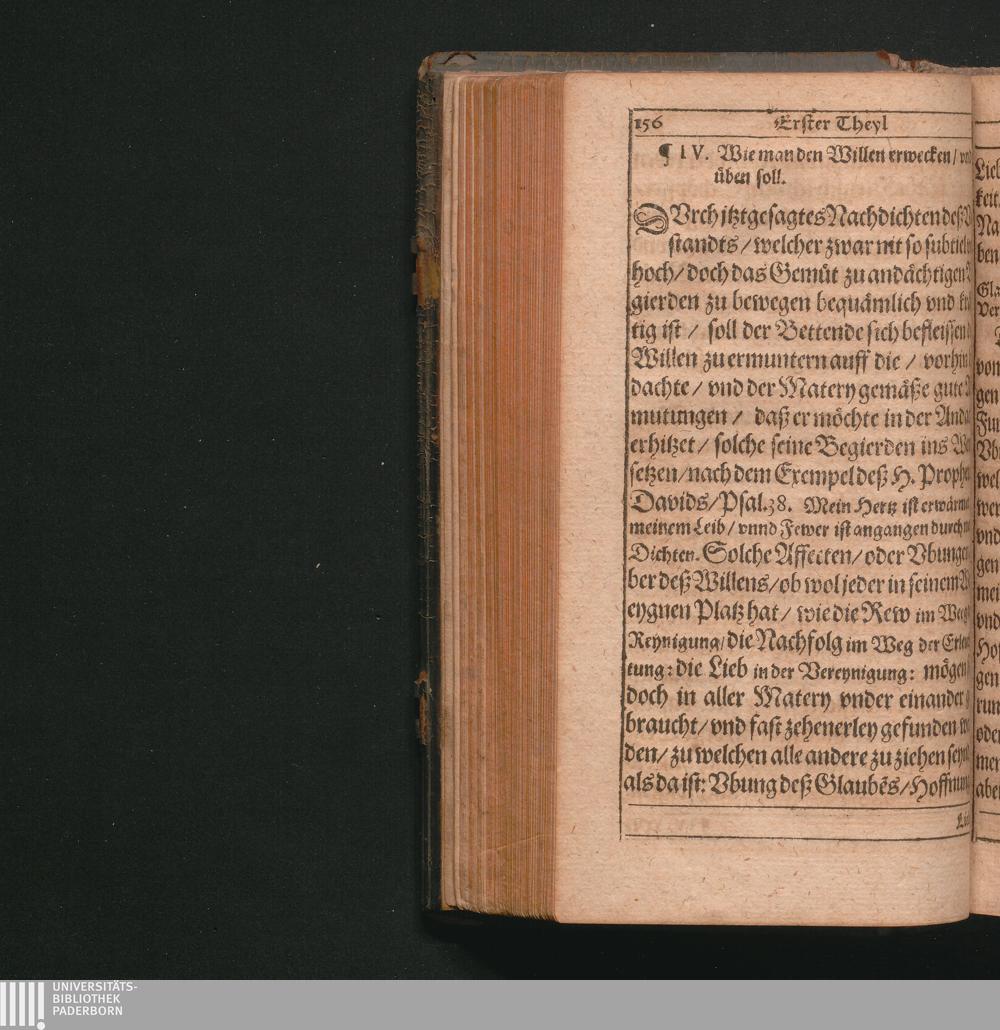 156 Erster Theyl
¶ IV. Wie man den Willen erwecken /
üben soll.
DVrch jtztgesagtes Nachdichten deß
standts / welcher zwar nit so subtiel
hoch / doch das Gemüt zu andächtigen
gierden zu bewegen bequämlich vnd
tig ist / soll der Bettende sich befleissen
Willen zu ermuntern auff die /
dachte / vnd der Matery gemäße gute
mutungen / daß er möchte in der
erhitzet / solche seine Begierden ins
setzen / nach dem Exempel deß H.
Davids / Psal. 38. Mein Hertz ist
meinem Leib / vnnd Fewer ist angangen durch
Dichten. Solche Affecten / oder
ber deß Willens / ob wol jeder in seinem
eygnen Platz hat / wie die Rew im
Reynigung / die Nachfolg im Weg der
tung : die Lieb in der Vereynigung : mögen
doch in aller Matery vnder einander
braucht / vnd fast zehenerley gefunden
den / zu welchen alle andere zu ziehen
als da ist : Vbung deß Glaubẽs /
UNIVERSITÄTS-
BIBLIOTHEK
PADERBORN